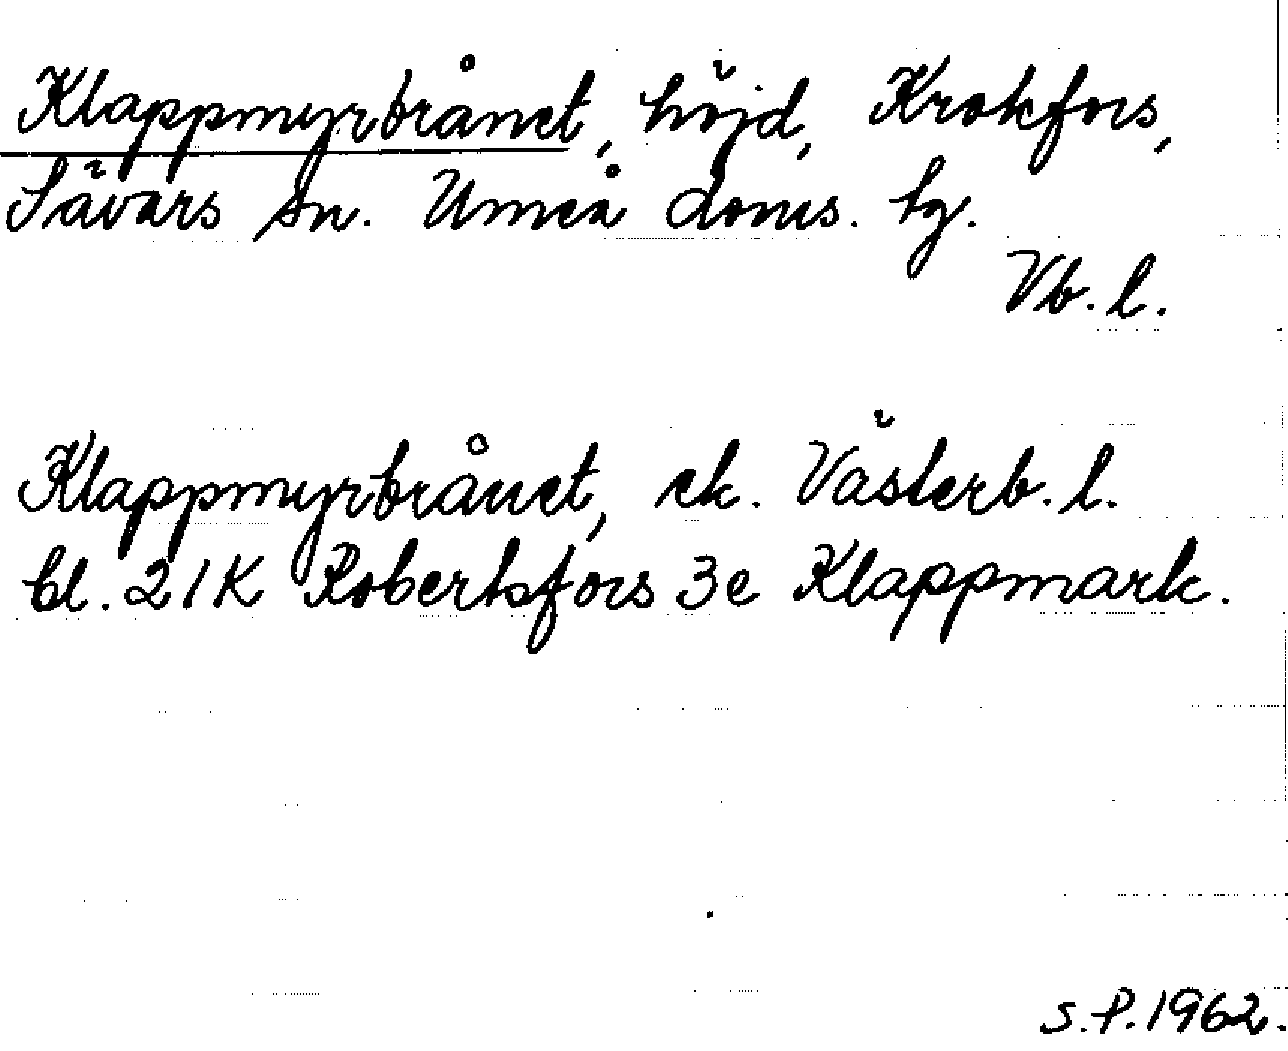 Klappmyrbrånet, höjd, Krokfors,
Sävars sn. Umeå doms. tg.
Vb. l.
Klappmyrbrånet, ek. Västerb. l.
bl. 21K Robertsfors 3e Klappmark.
S.P. 1962.